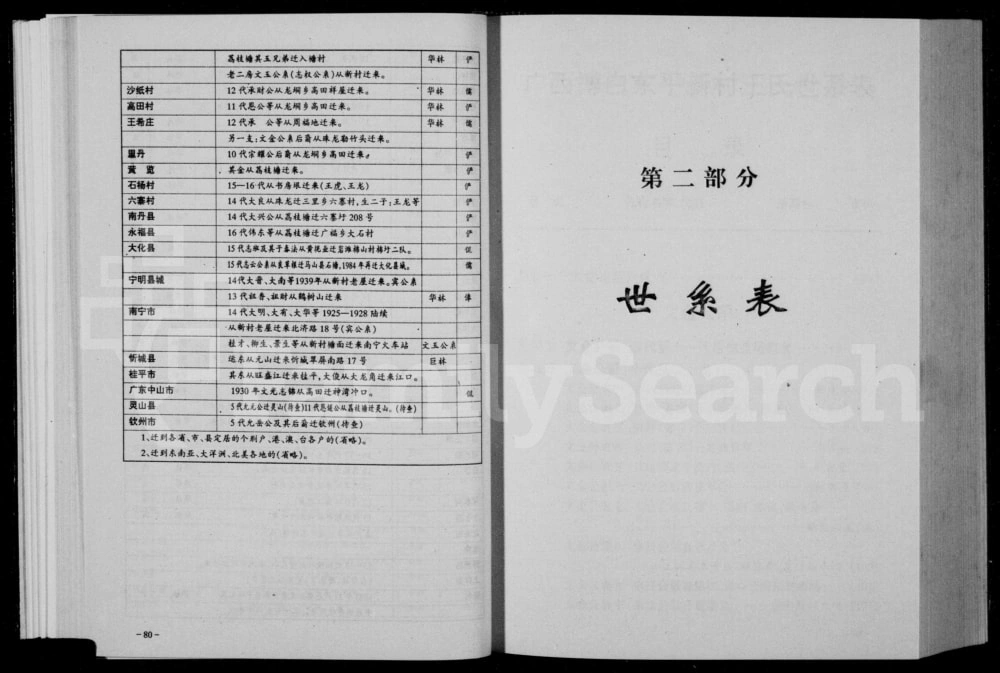 荔枝塘其玉兄弟迁入塘村 华林 俨
老二房文玉公系(志权公系)从新村迁来。
沙纸村 12代承财公从龙垌乡高田祥屋迁来。 华林 儒
高田村 11代恩公等从龙垌乡高田迁来。 华林
王希庄 12代承 公等从周福地迁来。 华林 儒
另一支:文金公系后裔从珠龙勒竹头迁来。
里丹 10代宗耀公后裔从龙垌乡高田迁来。
黄 览 其金从荔枝塘迁来。
石杨村 15—16代从书房垠迁来(王虎、王龙)
六寨村 14代大良从珠龙迁三里乡六寨村,生二子:王龙等
南丹县 14代大兴公从荔枝塘迁六寨圩208号
永福县 16代伟东等从荔枝塘迁广福乡大石村
大化县 15代志班及其子春法从黄陇业迁岩滩棉山村棉圩二队。
15代志云公系从良草根迁马山县石塘,1984年再迁大化县城。 儒
宁明县城 14代大晋、大南等1939年从新村老屋迁来。宾公系
13代祖香、祖财从鹤树山迁来 华林
南宁市 14代大明、大有、大华等1925—1928陆续
从新村老屋迁来北济路18号(宾公系)
桂才、柳生、景生等从新村塘面迁来南宁火车站 文玉公系
忻城县 运东从元山迁来忻城翠屏南路17号 巨林
桂平市 其东从旺盛江迁来桂平,大俊从大龙角迁来江口。
广东中山市 1930年文光志锦从高田迁神湾冲口。
灵山县 5代尤元公迁灵山(待查)11代恩诞公从荔枝塘迁灵山。(待查)
钦州市 5代允云公及其后裔迁钦州(待查)
1、迁到各省、市、县定居的个别户、港、澳、台各户的(省略)。
2、迁到东南亚、大洋洲、北美各地的(省略)。
-80-
第二部分
世系表
FamilySearch